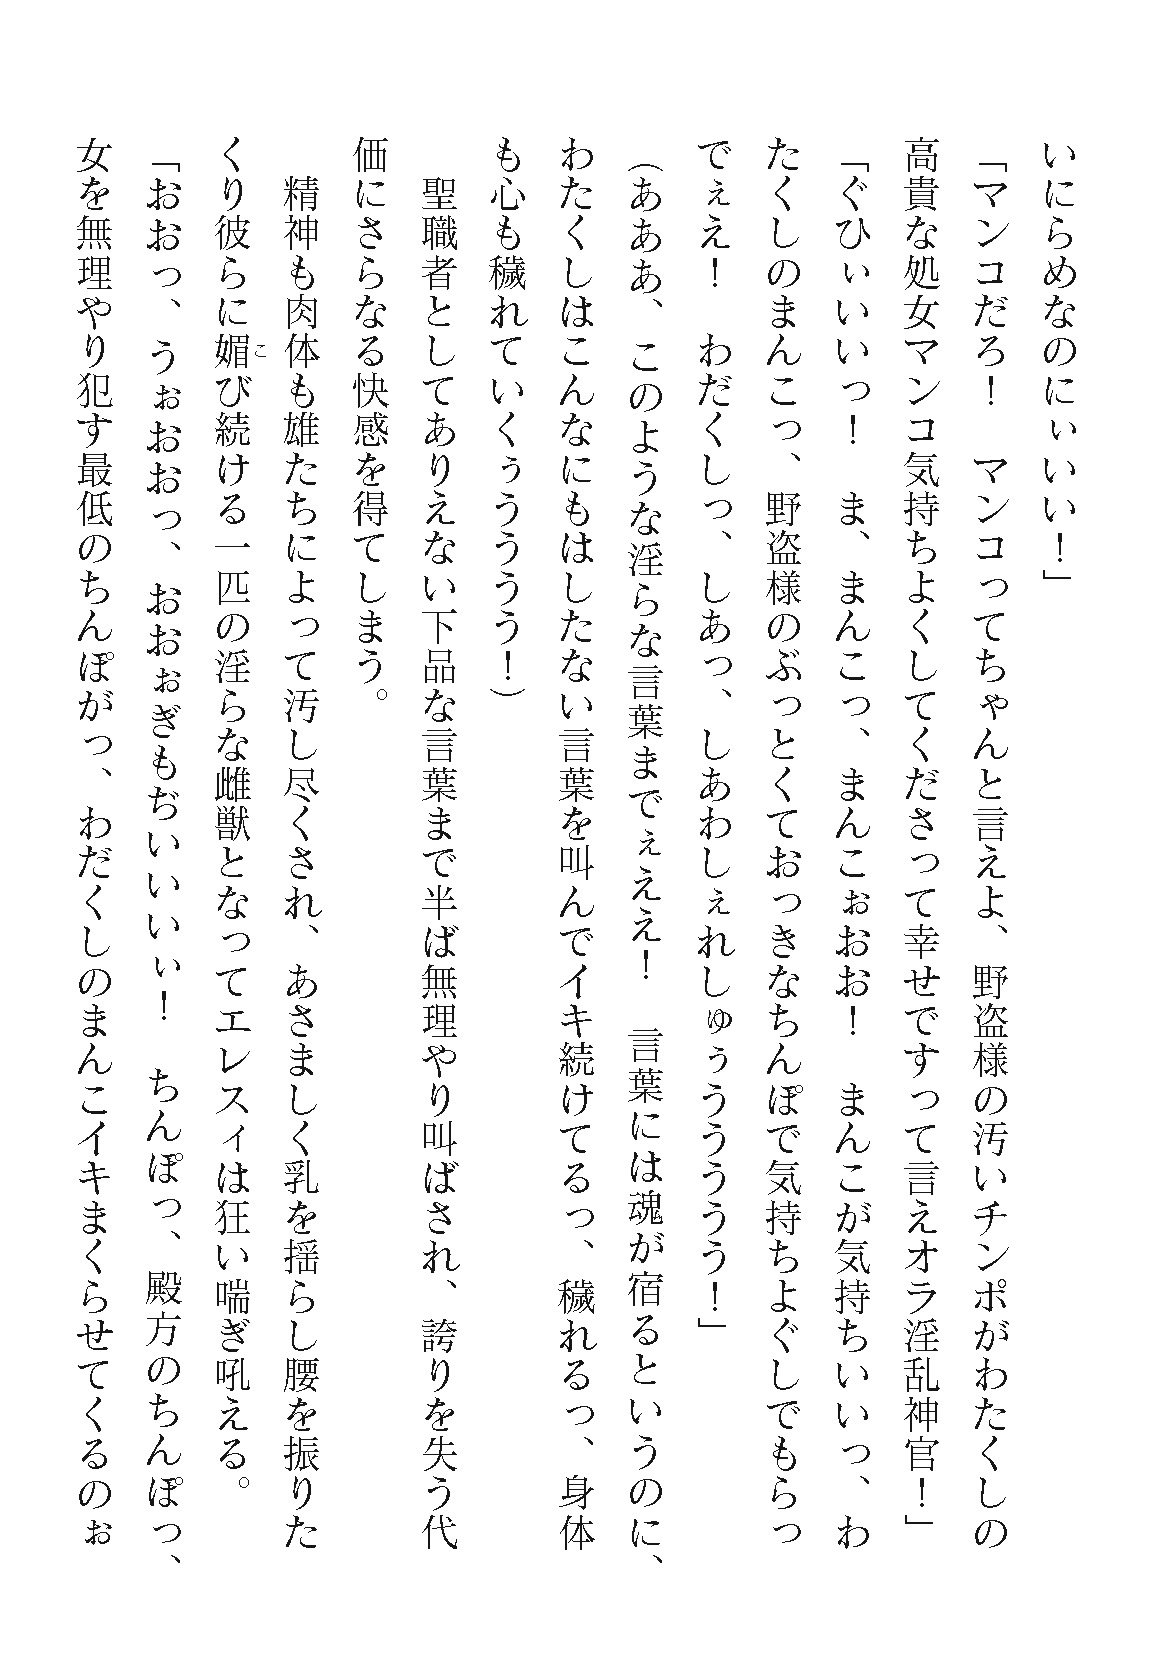 いにらめなのにぃいい！」
「マンコだろ！　マンコってちゃんと言えよ、野盗様の汚いチンポがわたくしの
高貴な処女マンコ気持ちよくしてくださって幸せですって言えオラ淫乱神官！」
「ぐひぃいいっ！　ま、まんこっ、まんこぉおお！　まんこが気持ちいいっ、わ
たくしのまんこっ、野盗様のぶっとくておっきなちんぽで気持ちよぐしでもらっ
でぇえ！　わだくしっ、しあっ、しあわしぇれしゅぅううううう！」
（あああ、このような淫らな言葉までぇええ！　言葉には魂が宿るというのに、
わたくしはこんなにもはしたない言葉を叫んでイキ続けてるっ、穢れるっ、身体
も心も穢れていくぅうううう！）
　聖職者としてありえない下品な言葉まで半ば無理やり叫ばされ、誇りを失う代
価にさらなる快感を得てしまう。
　精神も肉体も雄たちによって汚し尽くされ、あさましく乳を揺らし腰を振りた
くり彼らに媚こび続ける一匹の淫らな雌獣となってエレスィは狂い喘ぎ吼える。
「おおっ、うぉおおっ、おおぉぎもぢいいいぃ！　ちんぽっ、殿方のちんぽっ、
女を無理やり犯す最低のちんぽがっ、わだくしのまんこイキまくらせてくるのぉ